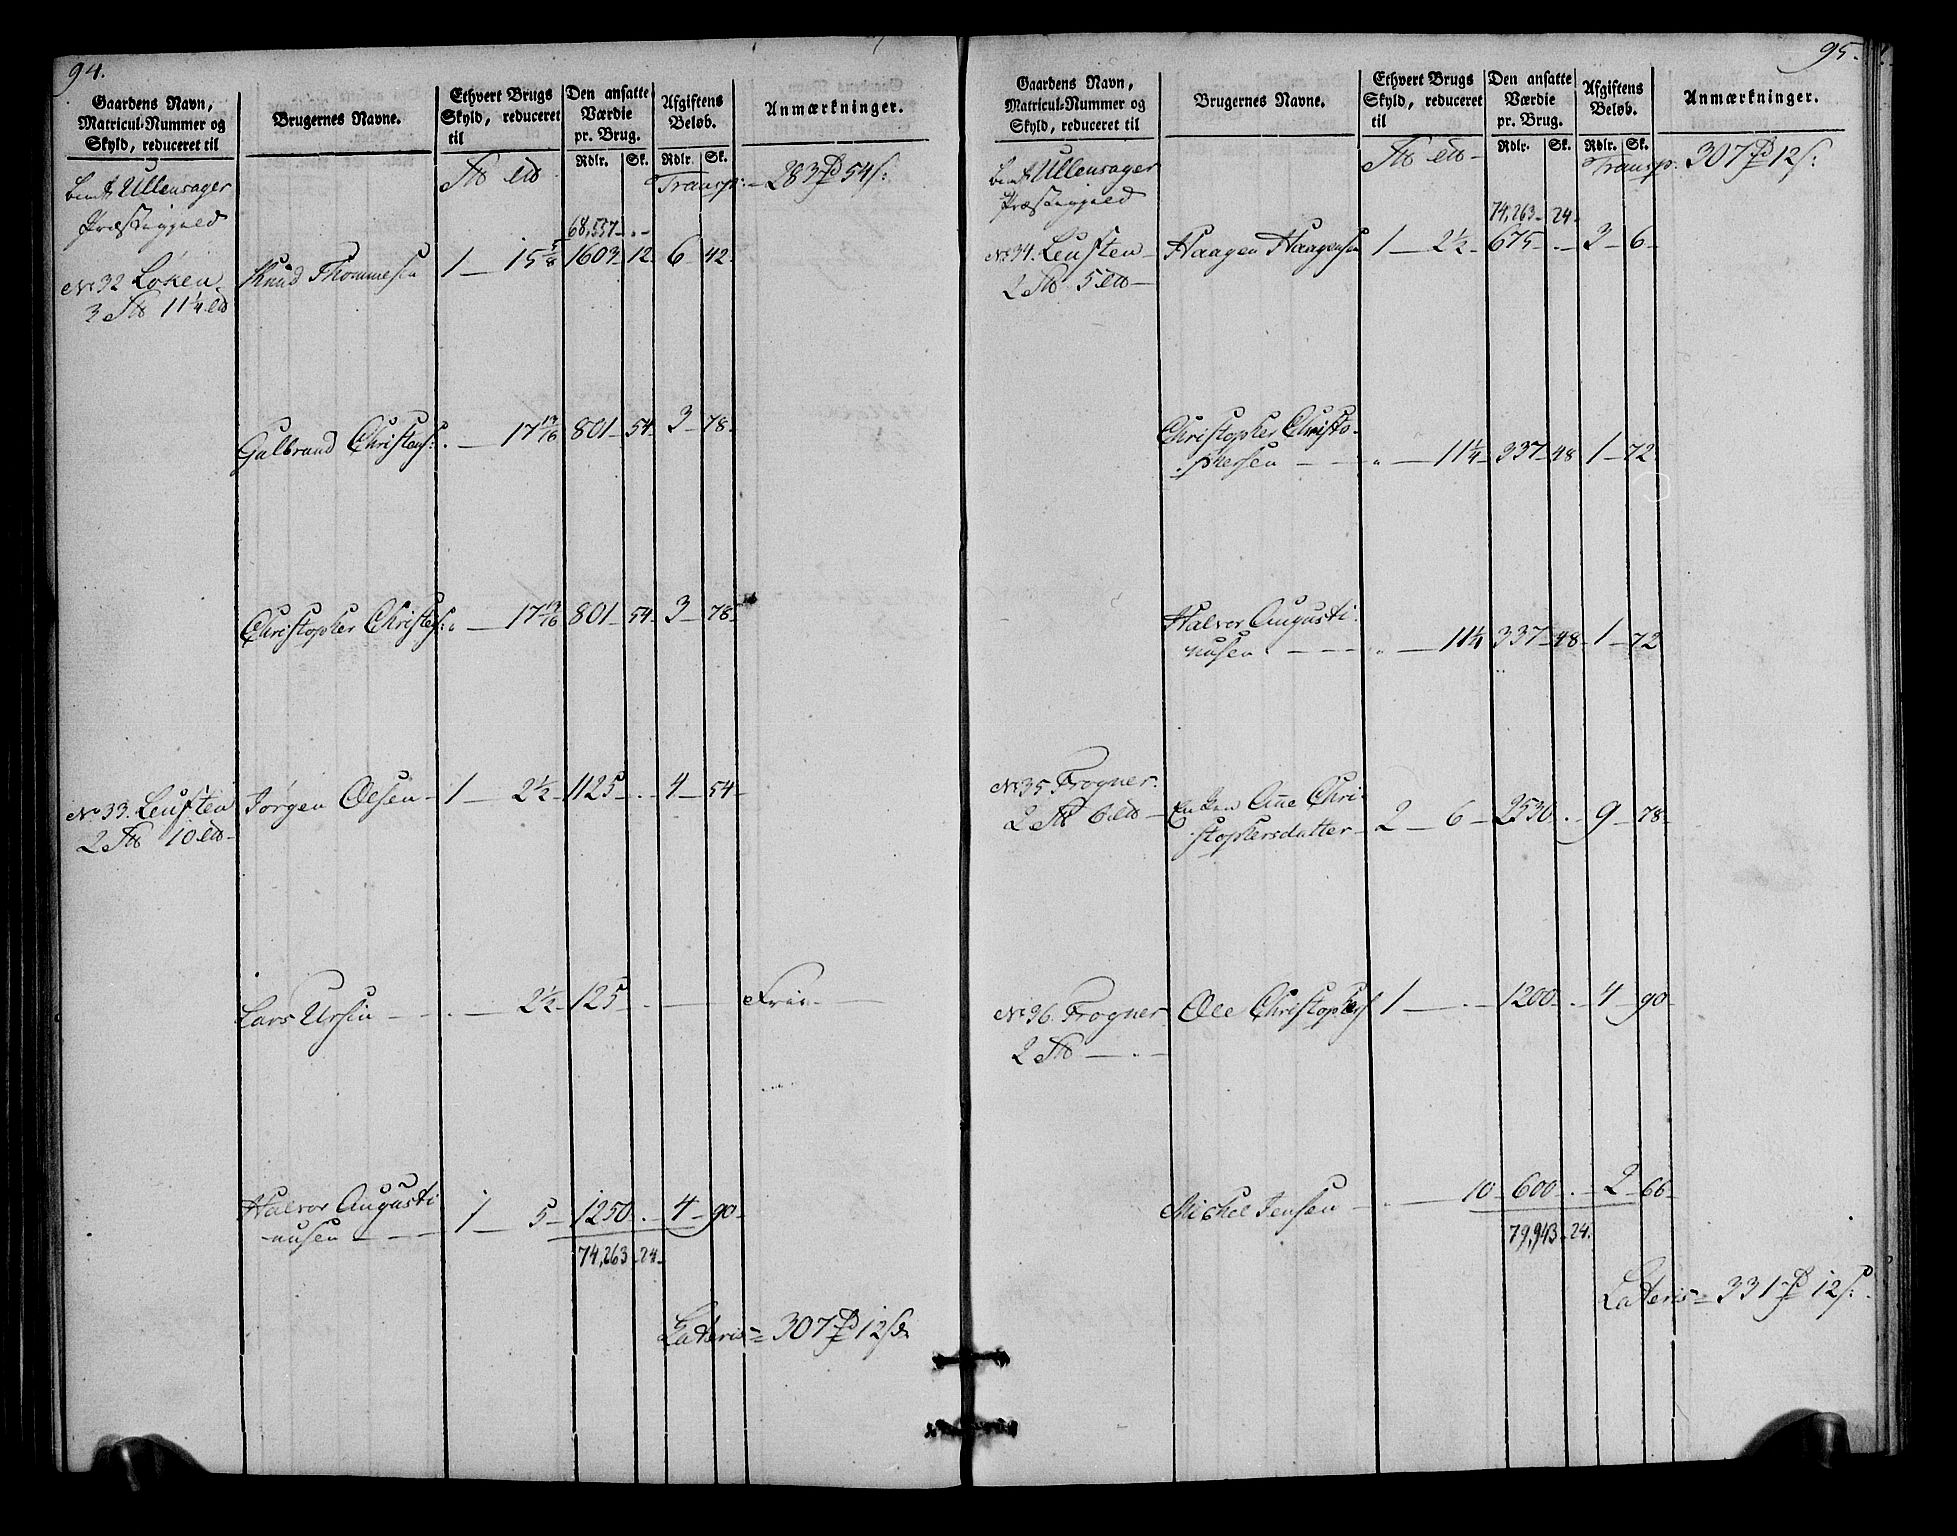 94.
Gaardens Navn,
Matricul-Nummer og
Skyld, reduceret til
Brugernes Navne.
Ethvert Brugs
Skyld, reduceret
til
Den ansatte
Værdie
pr. Brug.
Rdlr. Sk.
Afgiftens
Beløb.
Rdlr. Sk.
Anmærkninger.
Ullensager
Præstegield
Transp: 283 54
68,557
No 32 Løken
3 11¼
Knud Thommesen 1 15⅝ 1603 12 6 42
Gulbrand Christens: 17 13/16 801 54 3 78
Christopher Christens: 17 13/16 801 54 3 78
No 33. Leufsten
2 10
Jørgen Olsen 1 2½ 1125 4 54
Lars Ursin 2½ 125 Frie
Halvor Augusti
nusen 1 5 1250 4 90
74,263 24
Lateris 307 12
95.
Gaardens Navn,
Matricul-Nummer og
Skyld, reduceret til
Brugernes Navne.
Ethvert Brugs
Skyld, reduceret
til
Den ansatte
Værdie
pr. Brug.
Rdlr. Sk.
Afgiftens
Beløb.
Rdlr. Sk.
Anmærkninger.
Ullensager
Præstegield
Transp. 307 12
74,263 24
No 34. Leufsten
2 5
Haagen Haagensen 1 2½ 675 3 6
Christopher Christo-
phersen 11¼ 337 48 1 72
Halvor Augusti
nusen 11¼ 337 48 1 72
No 35 Frogner
2 6
Enken Ane Chri-
stophersdatter 2 6 2530 9 78
No 36 Frogner
2
Ole Christophers 1 1200 4 90
Michel Jensen 10 600 2 66
79,943 24
Lateris 331 12